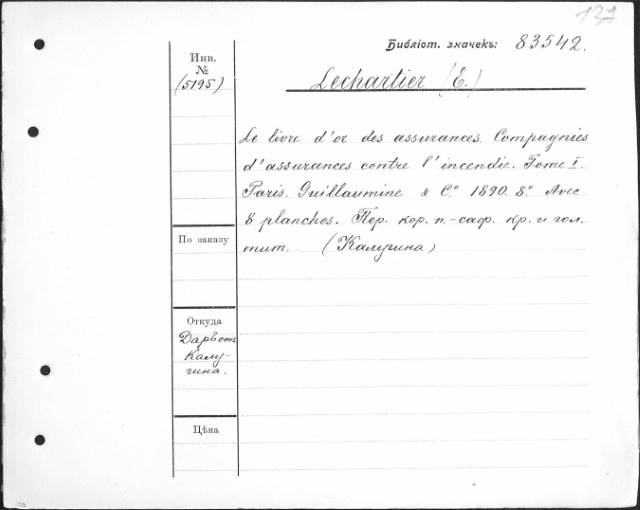 137
Библіот. значекъ: 83542.
Инв.
№
(5195)
Lechartier (E.)
Le livre d'or des assurances. Compagnies
d'assurances contre l'incendie. Tome I.
Paris. Guillaumine & Cº 1890. 8º. Avec
8 planches. Пер. кор. п.-саф. кр. и зол.
тит. (Калугина)
По заказу
Откуда
Даръ от
Калу-
гина.
Цѣна